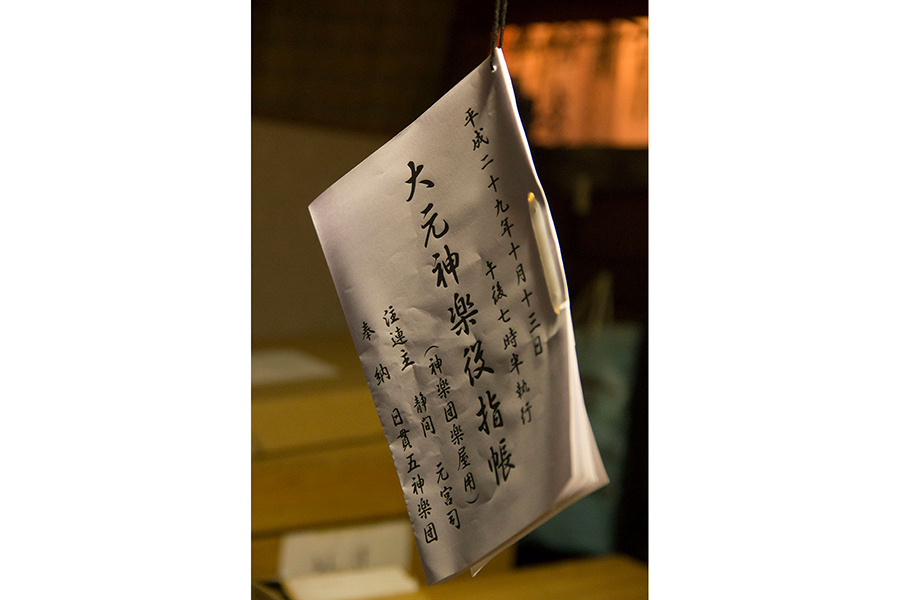 平成二十九年十月十三日
午後七時半執行
大元神楽役指帳
（神楽団楽屋用）
注連主　静間　元宮司
奉納　日貫五神楽団